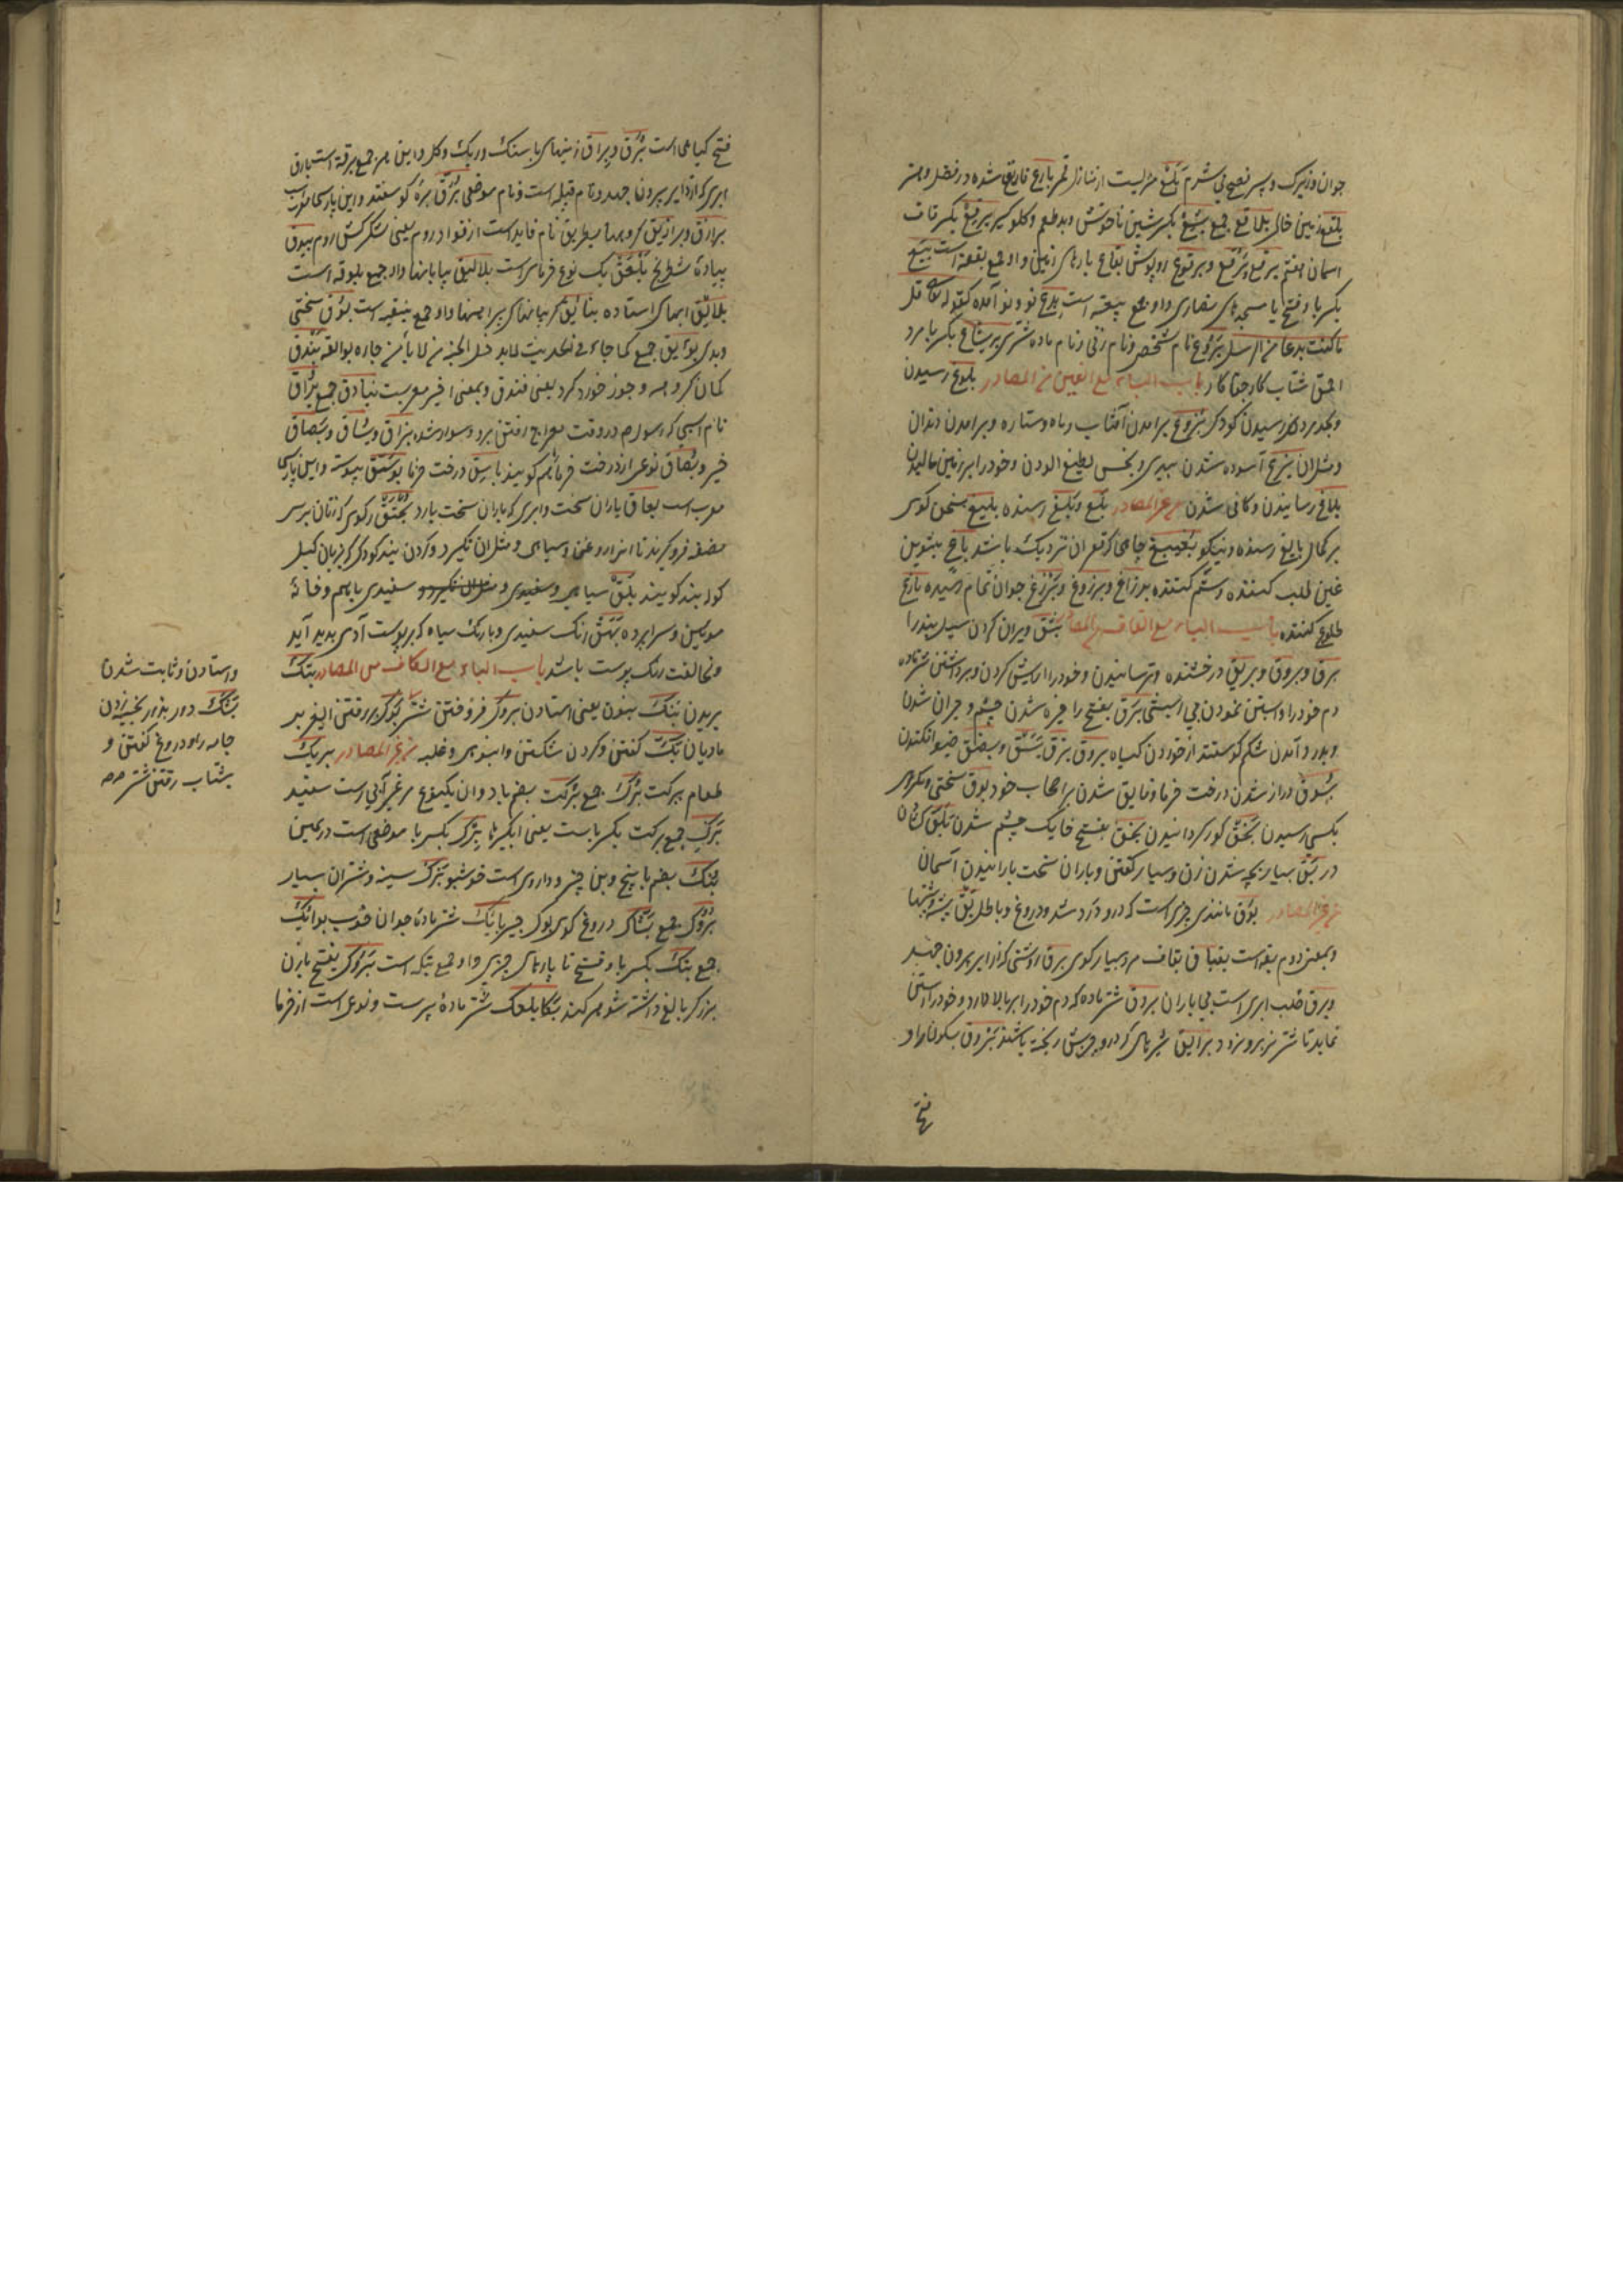 جوان و زیرک و پسر فصیح بی شرم بلع منزلیست از منازل قمر بارع فایق شده در فضل و هنر
بلقع زمین خالی بلاقع جمع بشع بکسر شین ناخوش و بدطعم و کلوکیر برقع بکسر قاف
اسمان هفتم برقع و برقع و برقوع روپوش بقاع پارهای زمین واو جمع بقعه است بیع
بکسر با و فتح یا مسجدهای نصاری واو جمع بیعه است بدع نو و نو آمده کقوله تعالی قل
ما کنت بدعا من الرسل بروع نام شخص و نام زنی و نام ماده شتری بکسر با مرد
احمق شتاب کار جفا کار باب الباء مع الغین من المصادر بلوغ رسیدن
و بحد مردی رسیدن کودک بزوغ برامدن آفتاب و ماه و ستاره و برامدن دندان
و مثل ان آسوده شدن بپلیدی و نجس الودن و خود را بر زمین مالیدن
بلاغ رسانیدن و کافی شدن من غیر المصادر بلغ و بلغ رسنده بلیغ سخن کوی
بر کمال بالغ رسنده و نیکو چاهی که قعر ان نزدیک باشد باغ بتنوین
غین طلب کننده و ستم کننده برزاغ و برزوغ و برزغ جوان تمام رسیده بازغ
طلوع کننده باب الباء مع القاف من المصادر بثق ویران کردن سیل بند را
برق و بروق و بریق درخشنده و ترسانیدن و خود را ارایش کردن و برداشتن شتر ماده
دم خود را و ابستن نمودن بی ابستنی برق بفتح را خیره شدن چشم و حیران شدن
و بدرد آمدن شکم کوسفند از خوردن کیاه بروق بزق بسق و بصق خیو افکندن
بسوق دراز شدن درخت خرما و فایق شدن بر اصحاب خود بوق سختی و مکروهی
بکسی رسیدن بخق کور کردانیدن بخق بفتح خا یک چشم شدن بلق کشادن
در بق بسیار بچه شدن زن و بسیار کفتن و باران سخت بارانیدن آسمان
من غیر المصادر بوق مانندی چیزی است که درو دمند و دروغ و باطل بق پشه و پشها
و بمعنی دوم بقه است بقباق بقاف مرد بسیار کوی برق روشنی که از ابر بیرون جهد
و برق خلب ابری است بی باران بروق شتر ماده که دم خود را بر بالا دارد و خود را ابستن
نماید تا شتر نر برو نرود برایق شیرهای که درو چربش ریخته باشند بروق بسکون را و
فتح
فتح کیاهی است برق و براق زمینهای با سنک و ریک و کل و این هر جمع برقه است بارق
ابری که ازو ابر بیرون جهد و نام قبیله است و نام موضعی برق بره کوسفند و این پارسی معربست
برازق و برازیق کروهها بطریق نام قایدست از قواد روم یعنی لشکرکش روم بیدق
پیاده شطرنج بلعق یک نوع خرماست بلالیق بیابانها واو جمع بلوقه است
بلاثق ابهای استاده بنایق کریبانهای پیراهنها واو جمع بنیقه است بوق سختی
و بدی بوایق جمع کما جاء فی الحدیث لا یدخل الجنة من لا یأمن جاره بوایقه بندق
کمان کروهه و جوز خورد کرد یعنی فندق و بمعنی اخیر معربست بنادق جمع براق
نام اسبی که رسول م در وقت معراج رفتن برو سوار شده بزاق و بساق و بصاق
خیو و بصاق نوعی از درخت خرما هم کویند باسق درخت خرما بوستق پیوسته و این پارسی
معرب است بعاق باران سخت و ابری که باران سخت بارد بخنق رکوی که زنان بر سر
مقنعه فرو کیرند تا انرا روغن و سیاهی و مثل ان نکیرد و کردن بند کودک که بزبان کیل
کوله بند کویند بلق سیاهی و سفیدی و مثل ان نکیرد و سفیدی باهم و خانۀ
مویین و سراپرده بهق رنک سفیدی و با رنک سیاه که بر پوست آدمی پدید آید
و مخالفت رنک پوست باشد باب الباء مع الکاف من المصادر بتک
بریدن بنک بنون یعنی استادن بروک فرو خفتن شتر بوک بر رفتن الیغ بر
مادیان بک کفتن و کردن شکستن و انبوهی و غلبه من غیر المصادر بریک
طعام ببرکت برک جمع برکت بضم با و ان یکنوع مرغ آبی است سفید
برک جمع برکت بکسر باست یعنی ابکیرها برک بکسر با موضعی است در یمن
بنک بضم با بیخ و بن چیز و داروی است خوشبو برک سینه و شتران بسیار
بروک جمع بشاک دروغ کوی بوک جیر بایک شتر ماده جوان خوب بوایک
جمع بتک بکسر با و فتح تا پارهای چیزی واو جمع بتکه است بروک بفتح با زن
بزرک که بالغ داشته شوهر کند بکا بلعک شتر ماده پیرست و نوعی است از خرما
و استادن و ثابت شدن
بشک دور بدور بخیه زدن
جامه را و دروغ کفتن و
بشتاب رفتن شتر صح